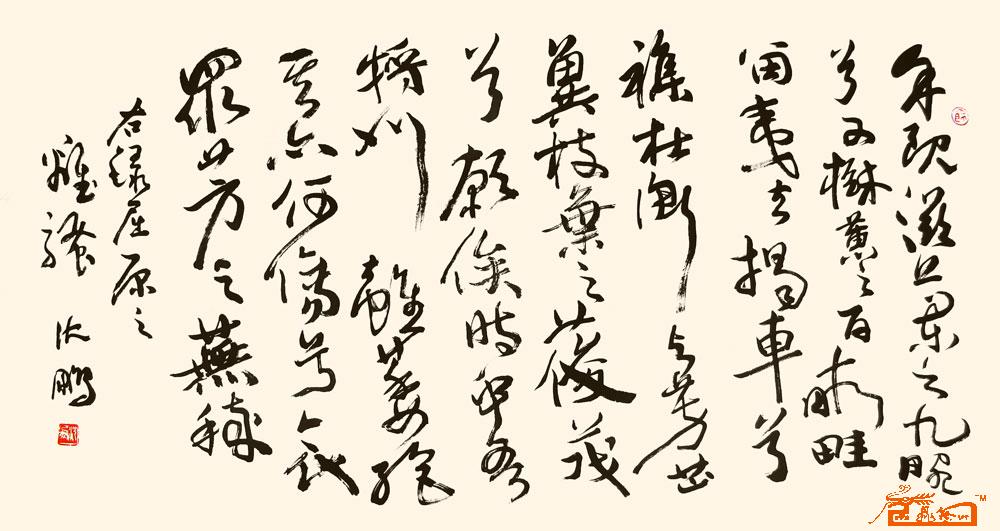 余既滋蘭之九畹
兮又樹蕙之百畝畦
留夷与揭車兮
雜杜衡与芳芷
冀枝葉之葰茂
兮願俟時乎吾
將刈雖萎絕
其亦何傷兮哀
眾芳之蕪穢
右録屈原之
離騷 沈鵬